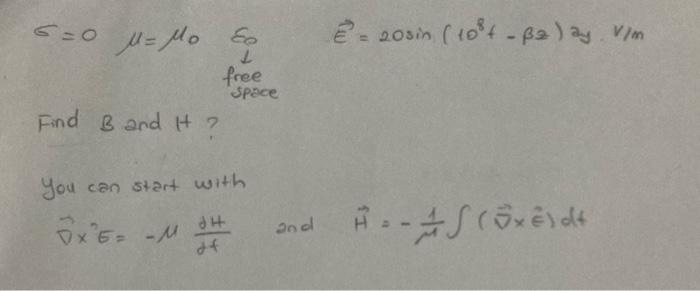 σ=0 μ=μ₀ ε₀ E⃗ = 20sin (10⁸t - βz) ay . V/m
↓
free
space
Find B and H ?
You can start with
∇⃗ x E⃗ = -μ ∂H/∂t and H⃗ = - 1/μ ∫ (∇⃗ x E⃗) dt